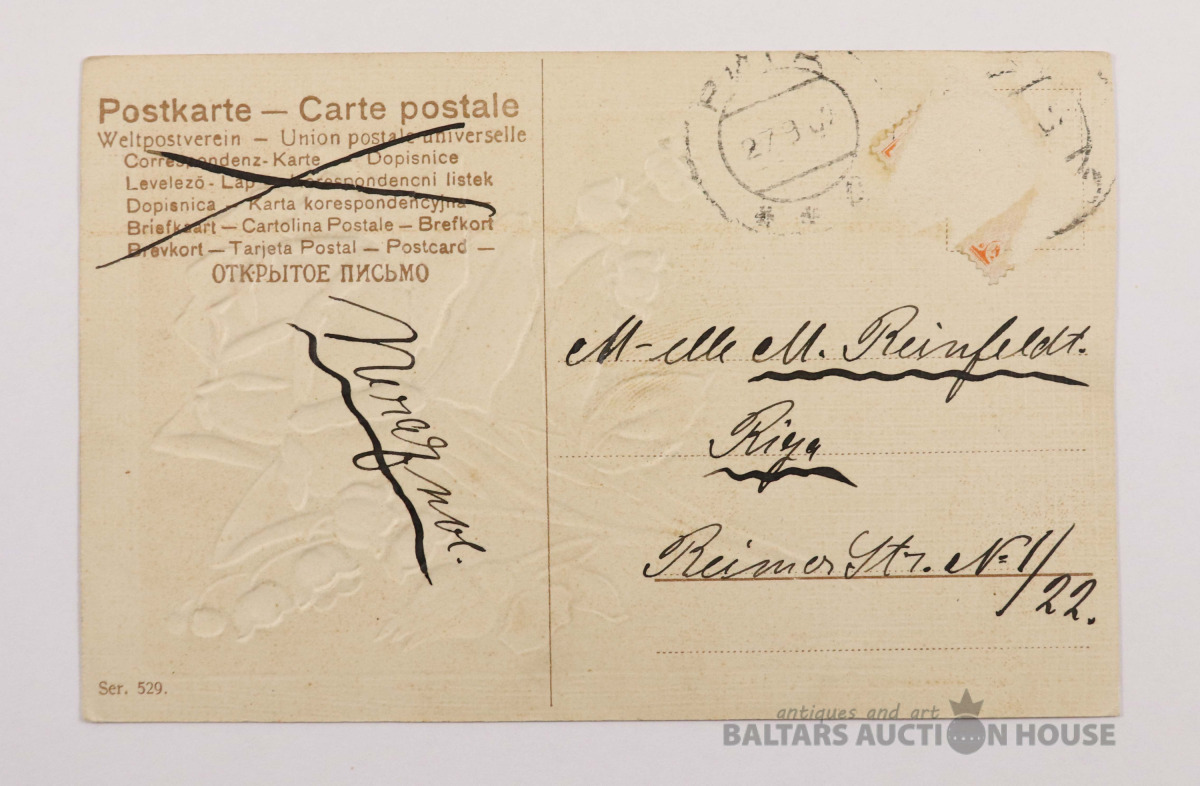 Postkarte — Carte postale
Weltpostverein — Union postale universelle
Correspondenz-Karte — Dopisnice
Levelező-Lap — Korespondencni listek
Dopisnica — Karta korespondencyjna
Briefkaart — Cartolina Postale — Brefkort
Brevkort — Tarjeta Postal — Postcard —
ОТКРЫТОЕ ПИСЬМО
27 9 07
M-elle M. Reinfeldt.
Riga
Reimer Str. № 1/22.
Ser. 529.
antiques and art
BALTARS AUCTION HOUSE